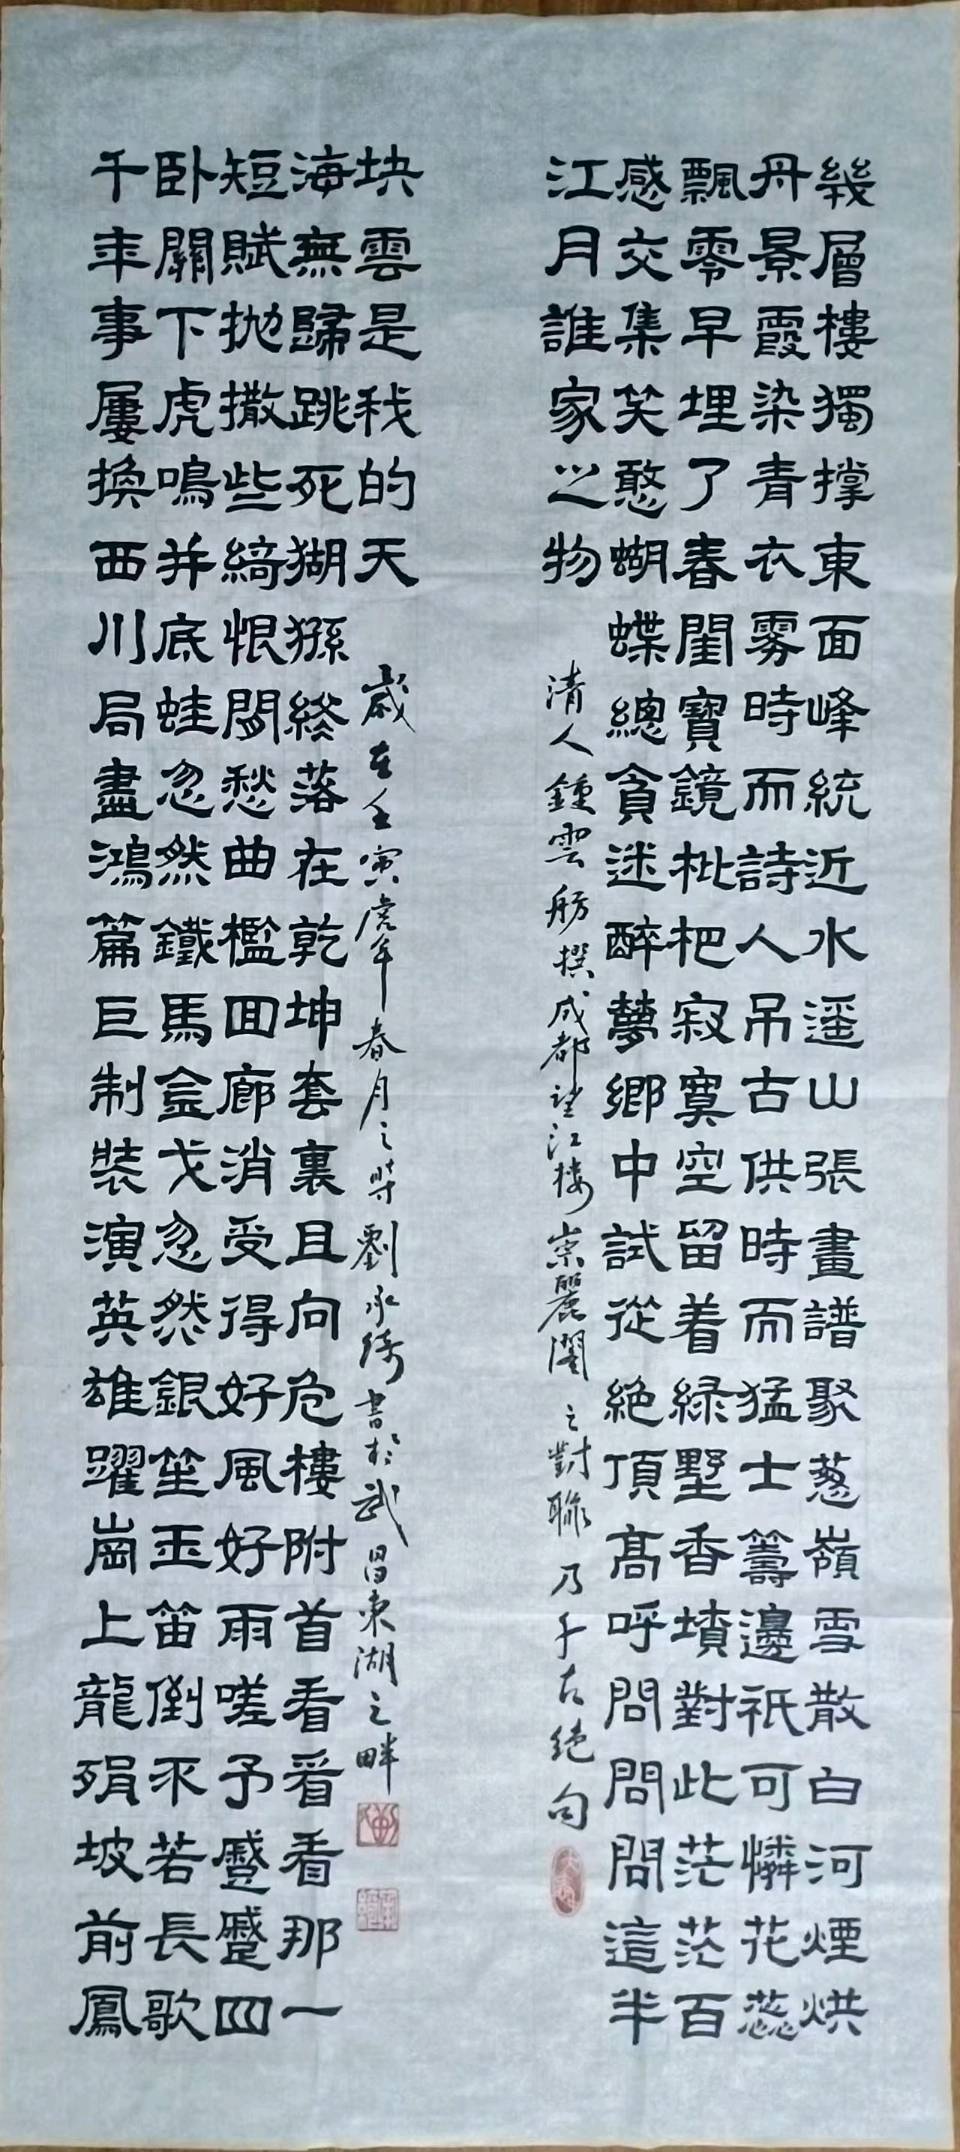 幾層樓獨撐東面峰統近水遥山張畫譜聚葱嶺雪散白河煙烘
丹景霞染青衣雾時而詩人吊古供時而猛士籌邊祇可憐花蕊
飄零早埋了春閨寶鏡枇杷寂寞空留着緑墅香墳對此茫茫百
感交集笑憨蝴蝶總貪迷醉夢鄉中試從絶頂髙呼問問問這半
江月誰家之物
清人鍾雲舫撰成都望江樓崇麗閣之對聯乃千古絶句
千年事屢換西川局盡鴻篇巨制裝演英雄躍崗上龍殞坡前鳳
卧關下虎鳴并底蛙忽然鐵馬金戈忽然銀笙玉笛倒不若長歌
短賦抛撒些綺恨閒愁曲檻回廊消受得好風好雨嗟予蹙蹙四
海無歸跳死猢猻終落在乾坤套裏且向危樓附首看看看那一
块雲是我的天
歲在壬寅虎年春月之時劉承綺書於武昌東湖之畔